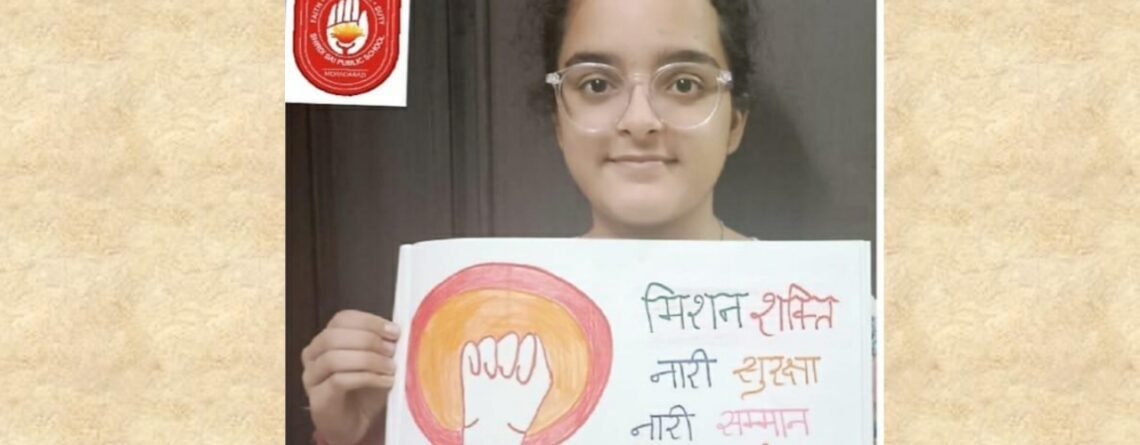 FAITH DUTY
SHIRDI SAI PUBLIC SCHOOL
MORADABAD
मिशन शक्ति
नारी सुरक्षा
नारी सम्मान